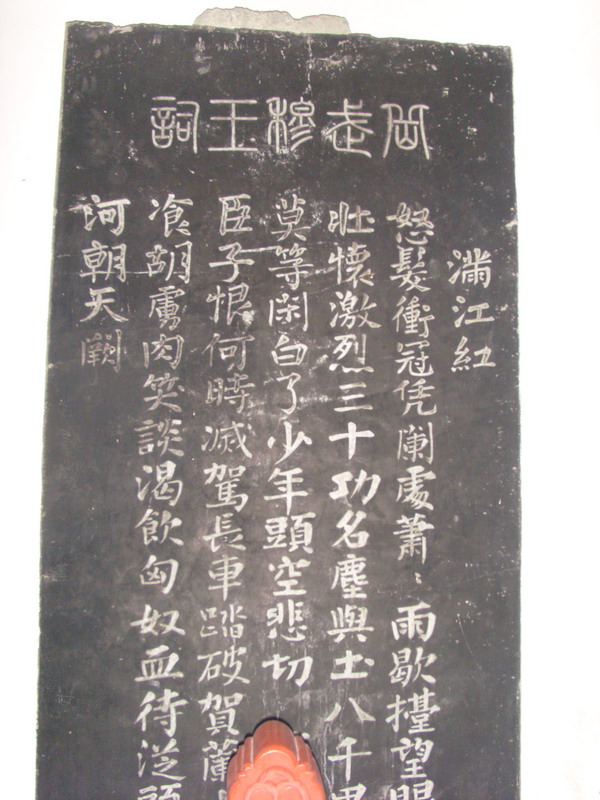 岳武穆王詞
滿江紅
怒髮衝冠凭闌處蕭〻雨歇擡望眼
壯懷激烈三十功名塵與土八千里
莫等閑白了少年頭空悲切
臣子恨何時滅駕長車踏破賀蘭
飡胡虜肉笑談渴飲匈奴血待從頭
河朝天闕